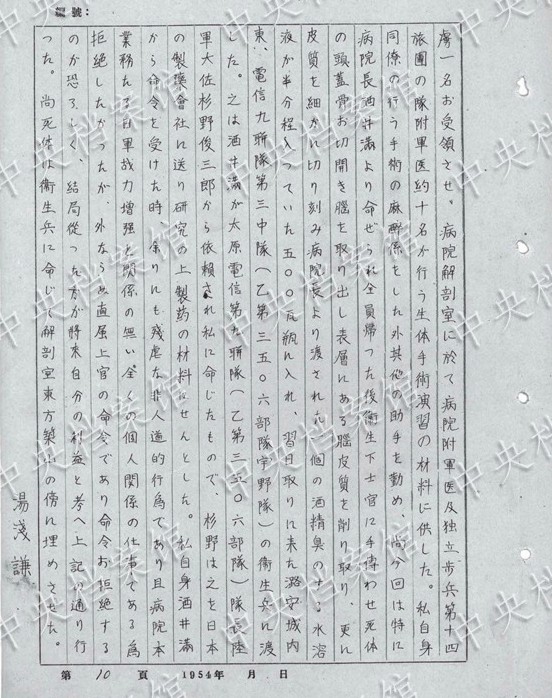 編號：
虜一名お受領させ。病院解剖室に於て病院附軍医及独立步兵第十四
旅團の隊附軍医約十名が行う生体手術演習の材料に供した。私自身
同僚の行う手術の麻醉係をした外其他の助手を勤め、尚今回は特に
病院長酒井滿より命ぜられ全員帰つた後衛生下士官に手傳わせ死体
の頭蓋骨お切開き腦を取り出し表層にある腦皮質を削り取り、更に
皮質を細かに切り刻み病院長より渡された十個の酒精臭のする水溶
液が半分程入つていた五〇〇瓦瓶に入れ、翌日取りに来た潞安城内
東、電信九聯隊第三中隊(乙第三五〇六部隊宇野隊)の衛生兵に渡
した。之は酒井滿が太原電信第九聯隊(乙第三五〇六部隊)隊長陸
軍大佐杉野俊三郎から依頼され私に命じたもので、杉野は之を日本
の製藥會社に送り研究の上製药の材料にせんとした。私自身酒井滿
から命令を受けた時余りにも殘虐な非人道的行為であり且病院本
業務たる日軍战力増强と関係の無い全くの個人関係の仕事である為
拒絕したかつたが、外ならぬ直屬上官の命令であり命令お拒絕する
のが恐ろしく、結局從つた方が將来自分の利益と考へ上記の通り行
つた。尚死体は衛生兵に命じて解剖室東方築山の傍に埋めさせた。
湯浅謙
第 10 頁 1954年 月 日
中央档案馆